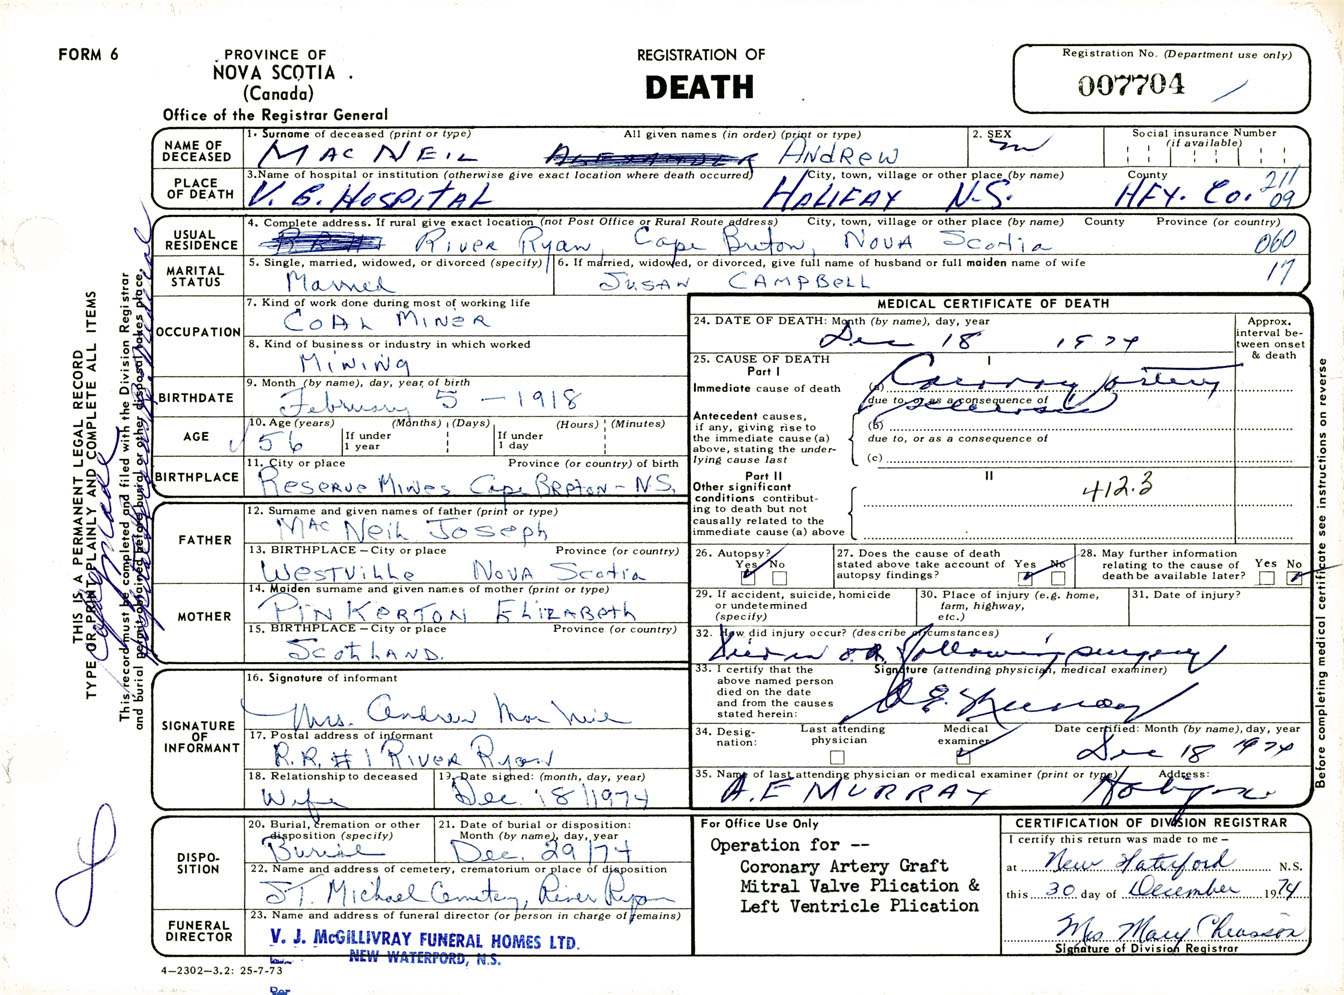 FORM 6
PROVINCE OF
NOVA SCOTIA
(Canada)
Office of the Registrar General
REGISTRATION OF
DEATH
Registration No. (Department use only)
007704
THIS IS A PERMANENT LEGAL RECORD
TYPE OR PRINT PLAINLY AND COMPLETE ALL ITEMS
This record must be completed and filed with the Division Registrar
and burial permit obtained before burial or other disposal takes place.
NAME OF DECEASED
1. Surname of deceased (print or type) All given names (in order) (print or type)
MAC NEIL ALEXANDER ANDREW
2. SEX
M
Social insurance Number
(if available)
PLACE OF DEATH
3. Name of hospital or institution (otherwise give exact location where death occurred) City, town, village or other place (by name) County
V. G. HOSPITAL HALIFAX N.S. HFX. Co. 211
09
USUAL RESIDENCE
4. Complete address. If rural give exact location (not Post Office or Rural Route address) City, town, village or other place (by name) County Province (or country)
River Ryan, Cape Breton, NOVA Scotia 060
17
MARITAL STATUS
5. Single, married, widowed, or divorced (specify)
Married
6. If married, widowed, or divorced, give full name of husband or full maiden name of wife
SUSAN CAMPBELL
OCCUPATION
7. Kind of work done during most of working life
COAL MINER
8. Kind of business or industry in which worked
MINING
BIRTHDATE
9. Month (by name), day, year of birth
February 5 - 1918
AGE
10. Age (years) (Months) (Days) (Hours) (Minutes)
56 If under 1 year If under 1 day
BIRTHPLACE
11. City or place Province (or country) of birth
Reserve Mines Cape Breton - NS.
FATHER
12. Surname and given names of father (print or type)
Mac Neil Joseph
13. BIRTHPLACE – City or place Province (or country)
Westville NOVA Scotia
MOTHER
14. Maiden surname and given names of mother (print or type)
PINKERTON ELIZABETH
15. BIRTHPLACE – City or place Province (or country)
SCOTLAND.
SIGNATURE OF INFORMANT
16. Signature of informant
Mrs. Andrew Mac Neil
17. Postal address of informant
R.R. # 1 River Ryan
18. Relationship to deceased
Wife
19. Date signed: (month, day, year)
Dec. 18/1974
DISPO-
SITION
20. Burial, cremation or other
disposition (specify)
Burial
21. Date of burial or disposition:
Month (by name), day, year
Dec. 29/74
22. Name and address of cemetery, crematorium or place of disposition
ST. Michael Cemetery, River Ryan
FUNERAL DIRECTOR
23. Name and address of funeral director (or person in charge of remains)
V. J. McGILLIVRAY FUNERAL HOMES LTD.
NEW WATERFORD, N.S.
Per
4–2302–3.2: 25-7-73
MEDICAL CERTIFICATE OF DEATH
24. DATE OF DEATH: Month (by name), day, year
Dec 18 1974
Approx. interval be-
tween onset & death
25. CAUSE OF DEATH
Part I
I
Immediate cause of death
(a) Coronary Artery
due to, or as a consequence of
sclerosis
Antecedent causes,
if any, giving rise to
the immediate cause (a)
above, stating the under-
lying cause last
(b)
due to, or as a consequence of
(c)
Part II
II
Other significant
conditions contribut-
ing to death but not
causally related to the
immediate cause (a) above
412.3
26. Autopsy?
Yes No
27. Does the cause of death
stated above take account of
autopsy findings?
Yes No
28. May further information
relating to the cause of
death be available later?
Yes No
29. If accident, suicide, homicide
or undetermined
(specify)
30. Place of injury (e.g. home,
farm, highway,
etc.)
31. Date of injury?
32. How did injury occur? (describe circumstances)
Died in O.R. following surgery
33. I certify that the
above named person
died on the date
and from the causes
stated herein:
Signature (attending physician, medical examiner)
A.E. Murray
34. Desig-
nation:
Last attending
physician
Medical
examiner
Date certified: Month (by name), day, year
Dec 18 1974
35. Name of last attending physician or medical examiner (print or type) Address:
A.E MURRAY Halifax
Before completing medical certificate see instructions on reverse
For Office Use Only
Operation for --
Coronary Artery Graft
Mitral Valve Plication &
Left Ventricle Plication
CERTIFICATION OF DIVISION REGISTRAR
I certify this return was made to me –
at New Waterford N.S.
this 30 day of December 1974
Mrs Mary Chiasson
Signature of Division Registrar